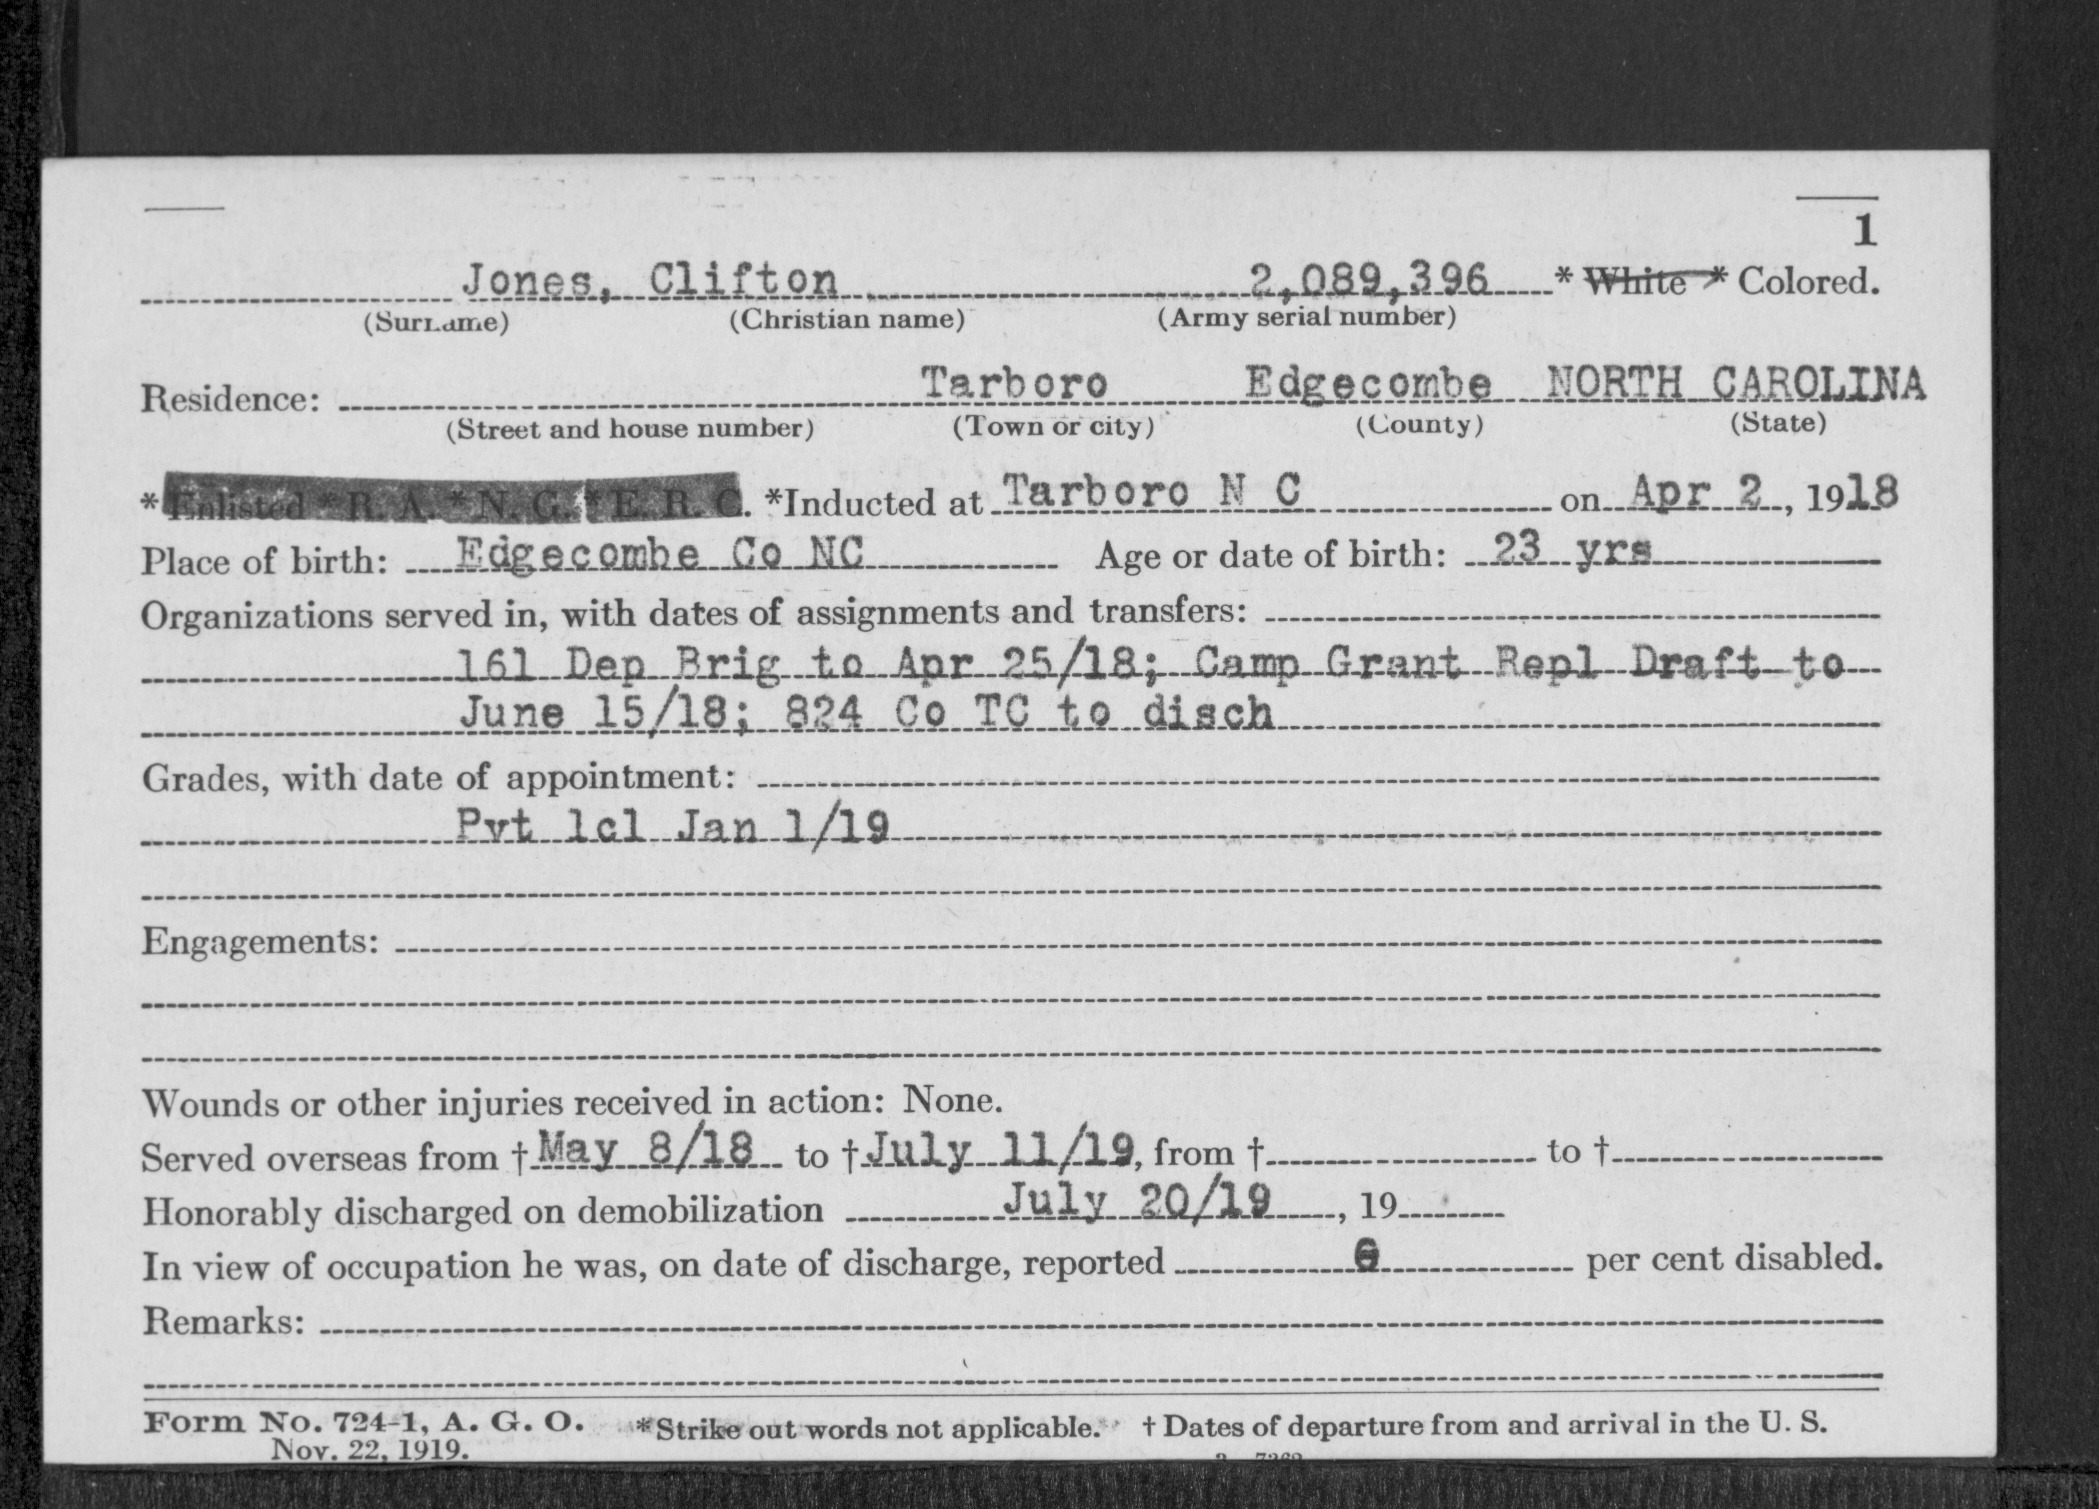 1
Jones, Clifton 2,089,396 * White * Colored.
(Surname) (Christian name) (Army serial number)
Residence: Tarboro Edgecombe NORTH CAROLINA
(Street and house number) (Town or city) (County) (State)
* Enlisted * R. A. * N. G. * E. R. C. *Inducted at Tarboro N C on Apr 2, 1918
Place of birth: Edgecombe Co NC Age or date of birth: 23 yrs
Organizations served in, with dates of assignments and transfers:
161 Dep Brig to Apr 25/18; Camp Grant Repl Draft to
June 15/18; 824 Co TC to disch
Grades, with date of appointment:
Pvt 1cl Jan 1/19
Engagements:
Wounds or other injuries received in action: None.
Served overseas from † May 8/18 to † July 11/19, from † to †
Honorably discharged on demobilization July 20/19, 19
In view of occupation he was, on date of discharge, reported 0 per cent disabled.
Remarks:
Form No. 724-1, A. G. O. *Strike out words not applicable. † Dates of departure from and arrival in the U. S.
Nov. 22, 1919.